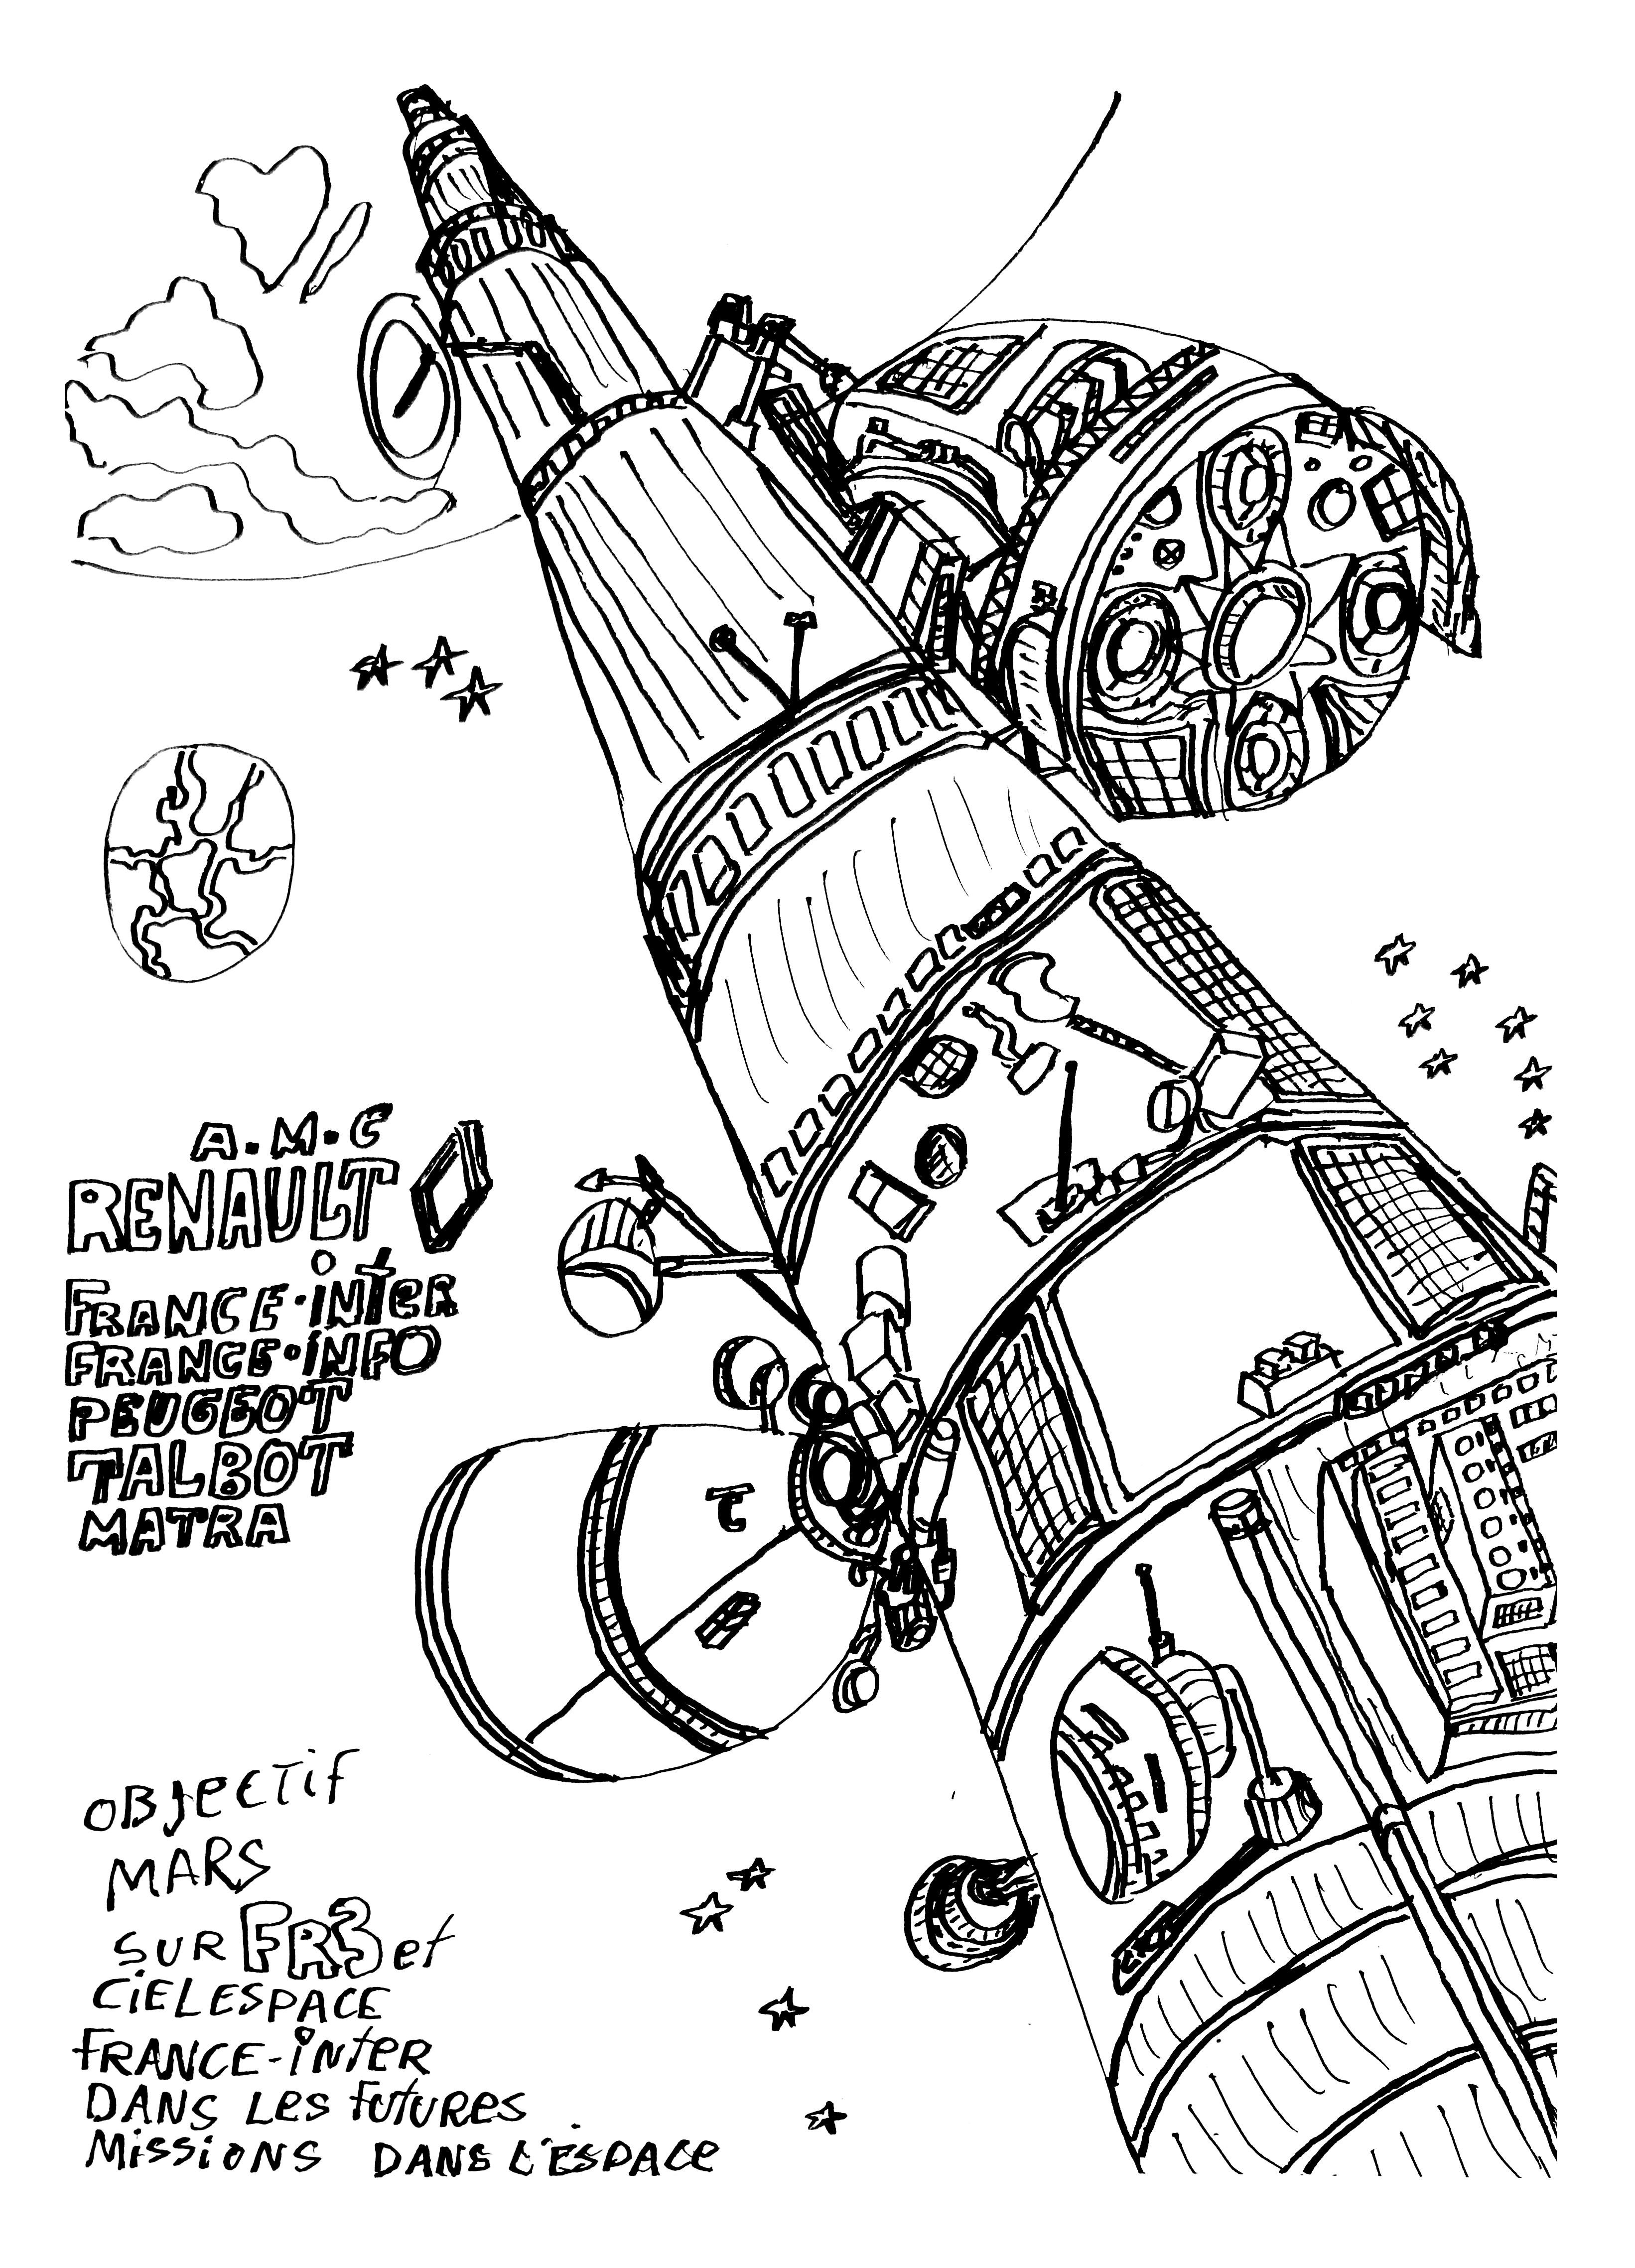 A.M.C
RENAULT
FRANCE-iNTER
FRANCE-iNFO
PEUGEOT
TALBOT
MATRA
OBJECTIF
MARS
SUR FR3 et
CIELESPACE
FRANCE-iNTER
DANS LES FUTURES
MISSIONS DANS L'ESPACE